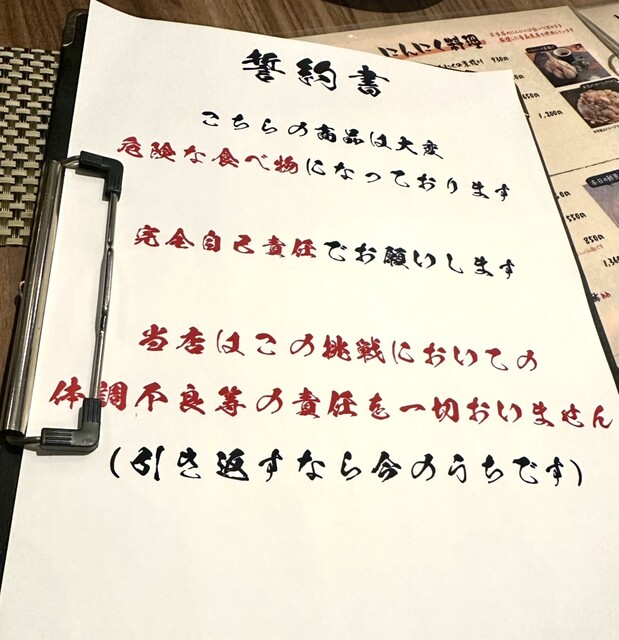 誓約書
こちらの商品は大変
危険な食べ物になっております
完全自己責任でお願いします
当店はこの挑戦においての
体調不良等の責任を一切おいません
(引き返すなら今のうちです)
にんにく料理
930円
1,200円
550円
850円